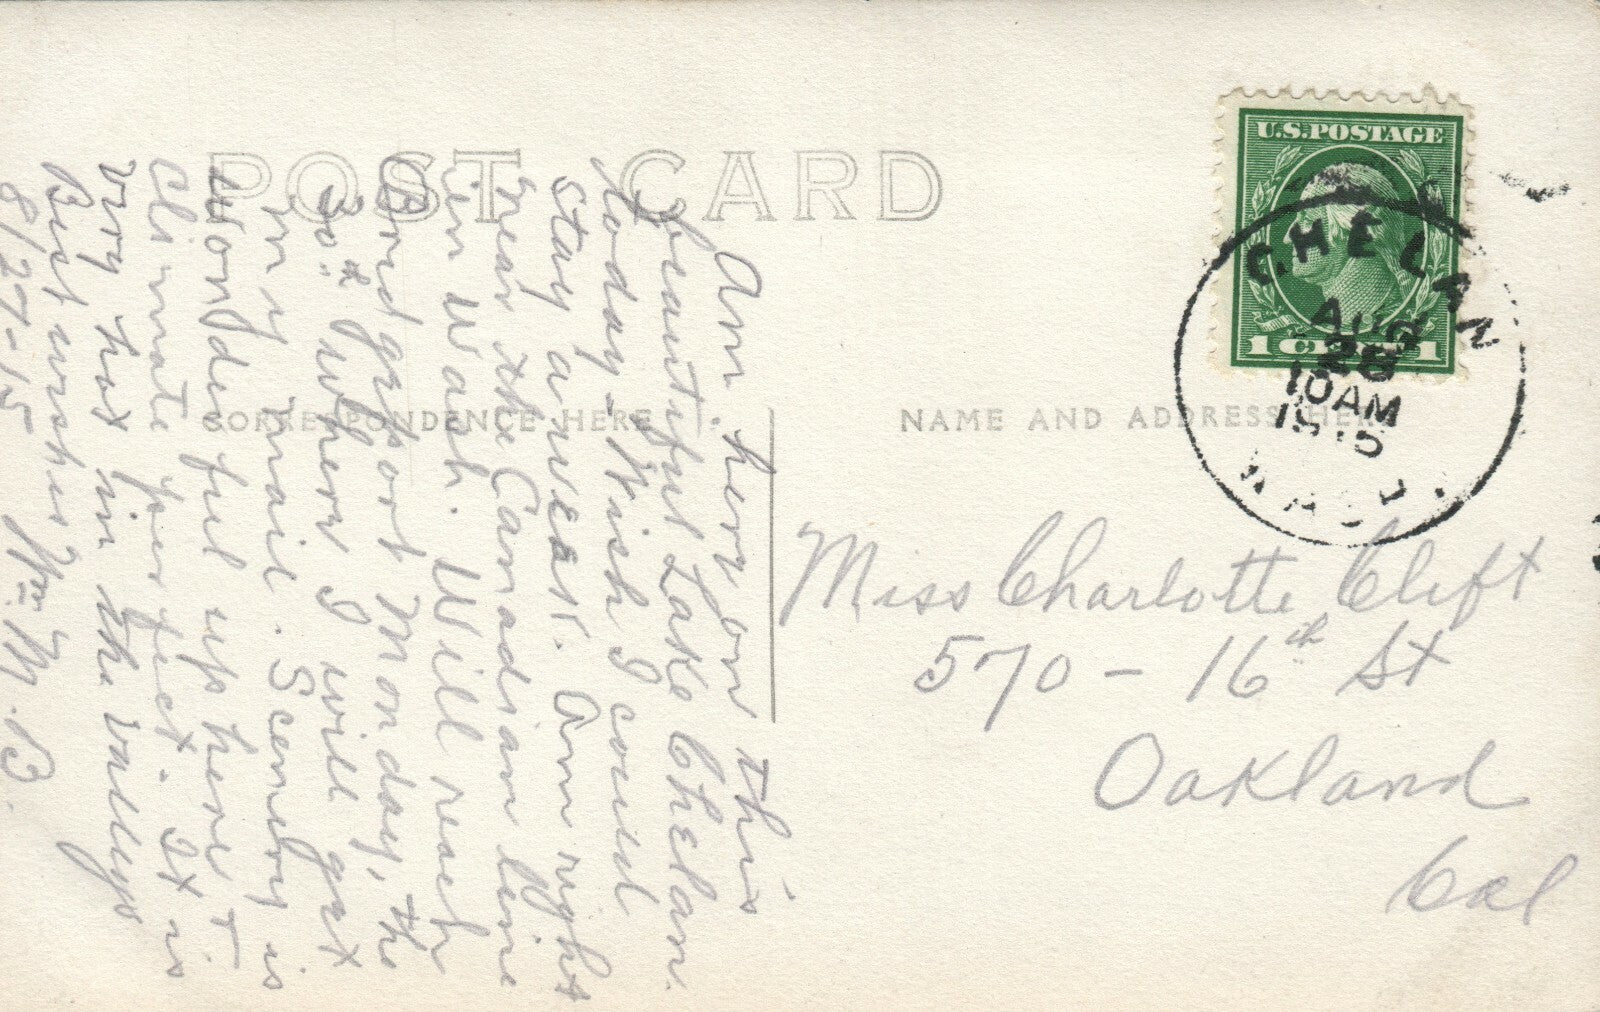 POST CARD
U.S.POSTAGE
1 CENT 1
CHELAN
AUG
28
10AM
1915
WASH.
CORRESPONDENCE HERE
NAME AND ADDRESS HERE
Am here on this
beautiful Lake Chelan
today - Wish I could
stay a week. Am right
near the Canadian line
in Wash. Will reach
Bridgeport Monday, the
30th where I will get
my mail. Scenery is
wonderful up here &
climate perfect. It is
very hot in the valleys
Best wishes Wm. M. B.
8/27-15
Miss Charlotte Clift
570 - 16th St
Oakland
Cal